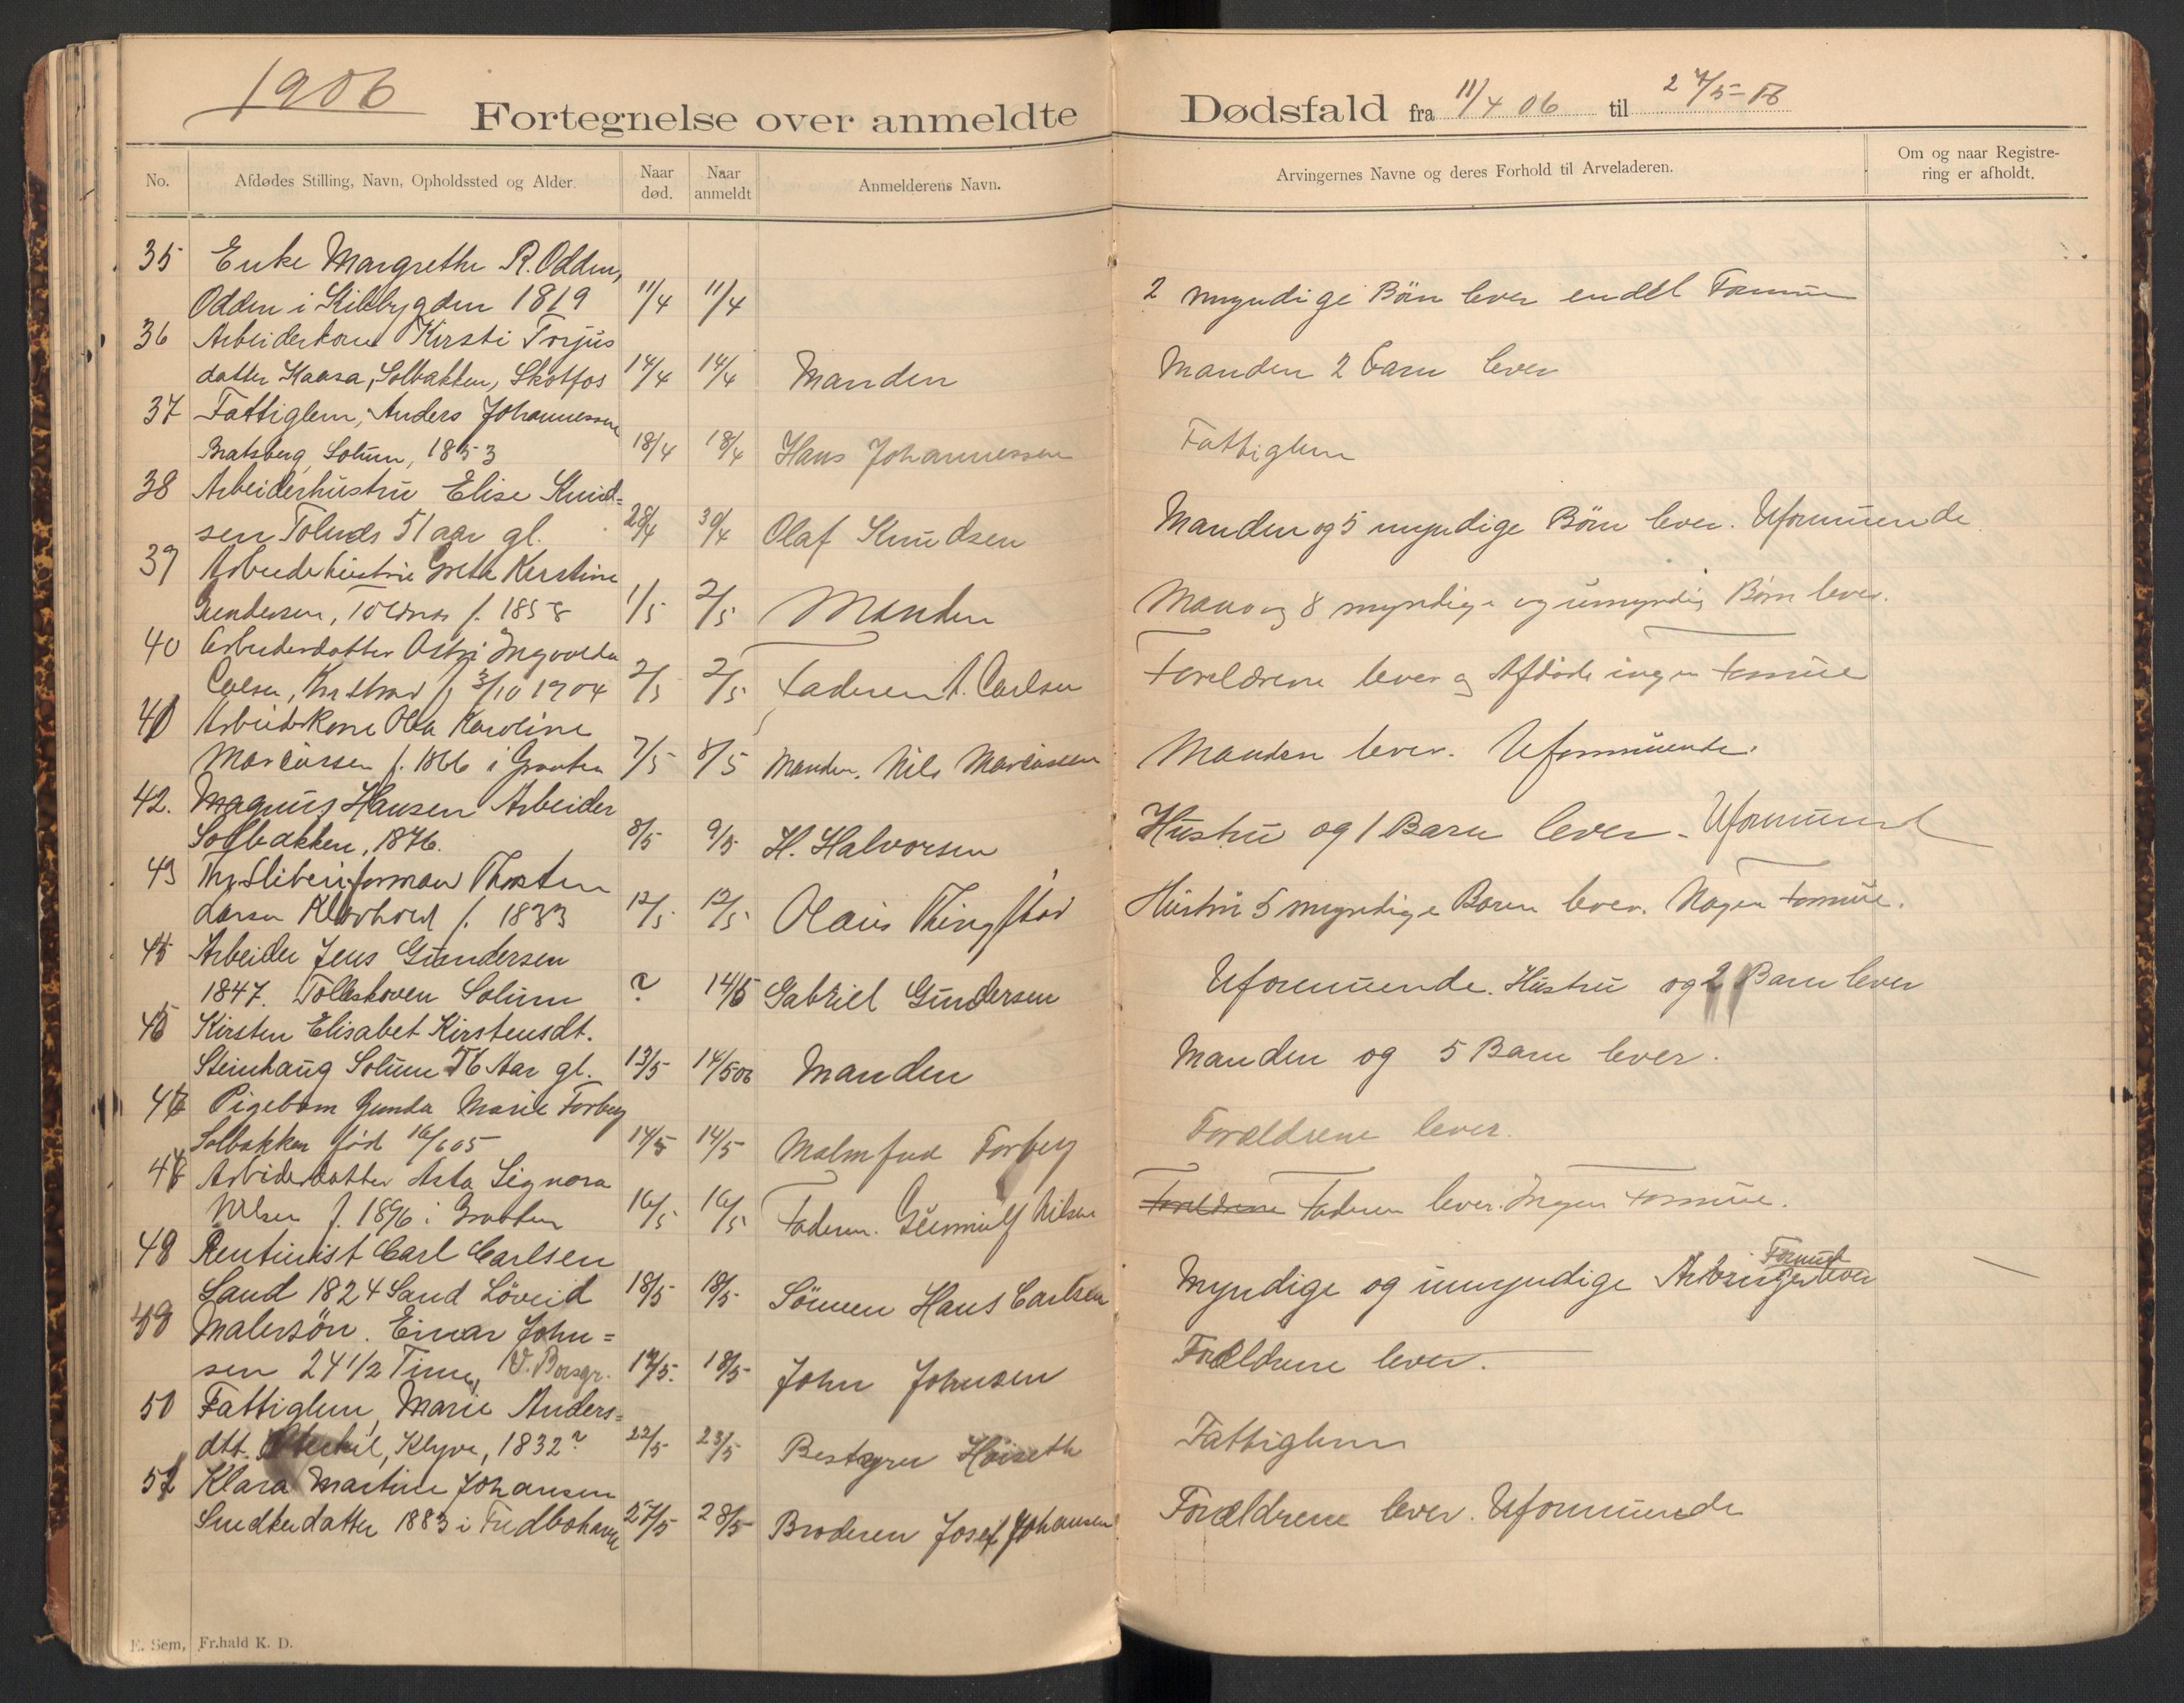 1906
Fortegnelse over anmeldte Dødsfald fra 11/4 06 til 27/5-06
No. Afdødes Stilling, Navn, Opholdssted og Alder. Naar død. Naar anmeldt Anmelderens Navn. Arvingernes Navne og deres Forhold til Arveladeren. Om og naar Registrering er afholdt.
35 Enke Margrethe R. Odden,
Odden i Kilebygden 1819 11/4 11/4 2 myndige Börn lever endel Formue
36 Arbeiderkone Kirsti Torjus
datter Kaasa, Solbakken, Skotfos 14/4 14/4 Manden Manden 2 barn lever
37 Fattiglem, Anders Johannessen
Bratsberg, Solum, 1853 18/4 18/4 Hans Johannessen Fattiglem
38 Arbeiderhustru Elise Knud=
sen Tolnds 51 aar gl. 28/4 30/4 Olaf Knudsen Manden og 5 myndige Börn lever. Uformuende
39 Arbeiderhustru Grethe Kerstine
Gundersen, f. 1858 1/5 2/5 Manden Mand og 8 myndige og umyndig Börn lever.
40 Arbeiderdatter Ingvolda
f 3/10 1904 2/5 2/5 Faderen A. Carlsen Forældrene lever og Afdøde ingen Formue
41 Arbeiderkone Karoline
Marcussen f. 1866 i Graaten 7/5 8/5 Manden, Nils Marcussen Manden lever. Uformuende.
42. Magnus Hansen Arbeider
Solbakken, 1876. 8/5 9/5 H. Halvorsen Hustru og 1 Barn lever - Uformuend
43 Thorsten
Larsen Klovholt f. 1833 12/5 12/5 Olaus Hustru 5 myndige Barn lever. Nogen Formue.
44 Arbeider Jens Gundersen
1847. Tolleskoven Solum ? 14/5 Gabriel Gundersen Uformuende. Hustru og 2 Barn lever
45 Kirsten Elisabet Kirstensdt.
Steinhaug Solum 76 Aar gl. 13/5 14/5 06 Manden Manden og 5 Barn lever.
46 Pigebarn Gunda Marie Forberg
Solbakken född 16/6 05 14/5 14/5 Malmfred Forberg Forældrene lever.
47 Arbeiderdatter Asta Signora
Nilsen f. 1896 i Graaten 16/5 16/5 Faderen. Nilsen Forældrene Faderen lever. Ingen Formue.
48 Rentenist Carl Carlsen Formue
Sand 1824 Sand Löveid 18/5 18/5 Sönnen Hans Carlsen Myndige og umyndige Arvinger lever
49 Malersön. Einar John=
sen 24 1/2 Time, V. Porsgr. 17/5. 18/5 John Johnsen Forældrene lever.
50 Fattiglem, Marie Anders=
dtt. Klyve, 1832? 22/5 23/5 Bestyrer Höiseth Fattiglem
51 Klara Martine Johansen
Snedkerdatter 1883 i 27/5 28/5 Broderen Josef Johansen Forældrene lever. Uformuende
E. Sem, Fr.hald K. D.